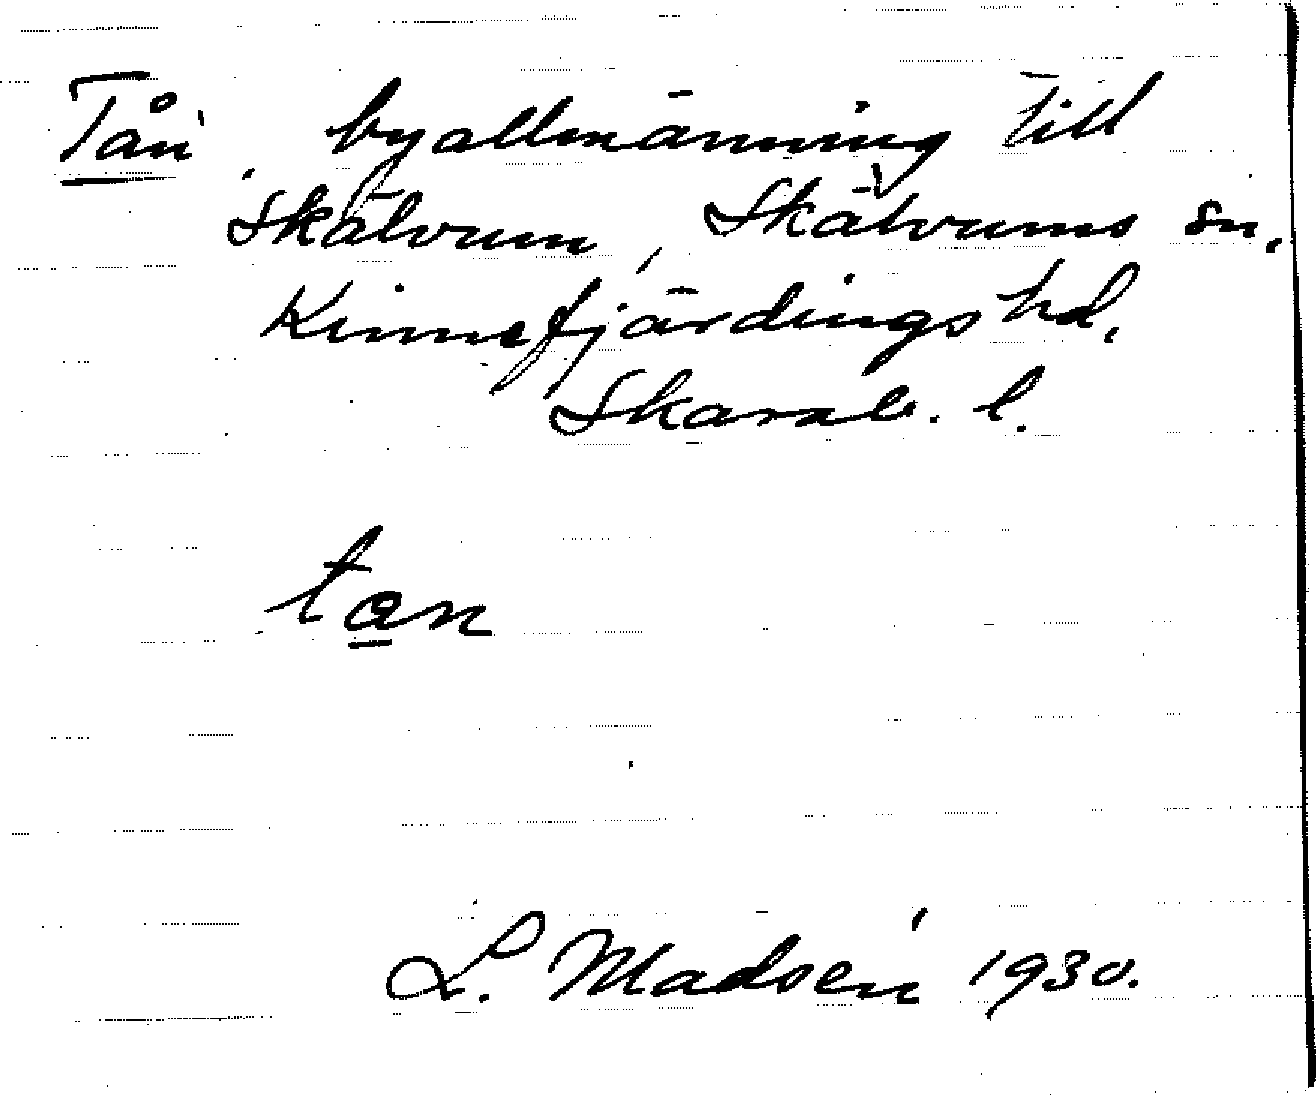 Tån, byallmänning till
Skälvum, Skälvums sn,
Kinnefjärdings hd,
Skarab. l.
tan
L. Madsén 1930.